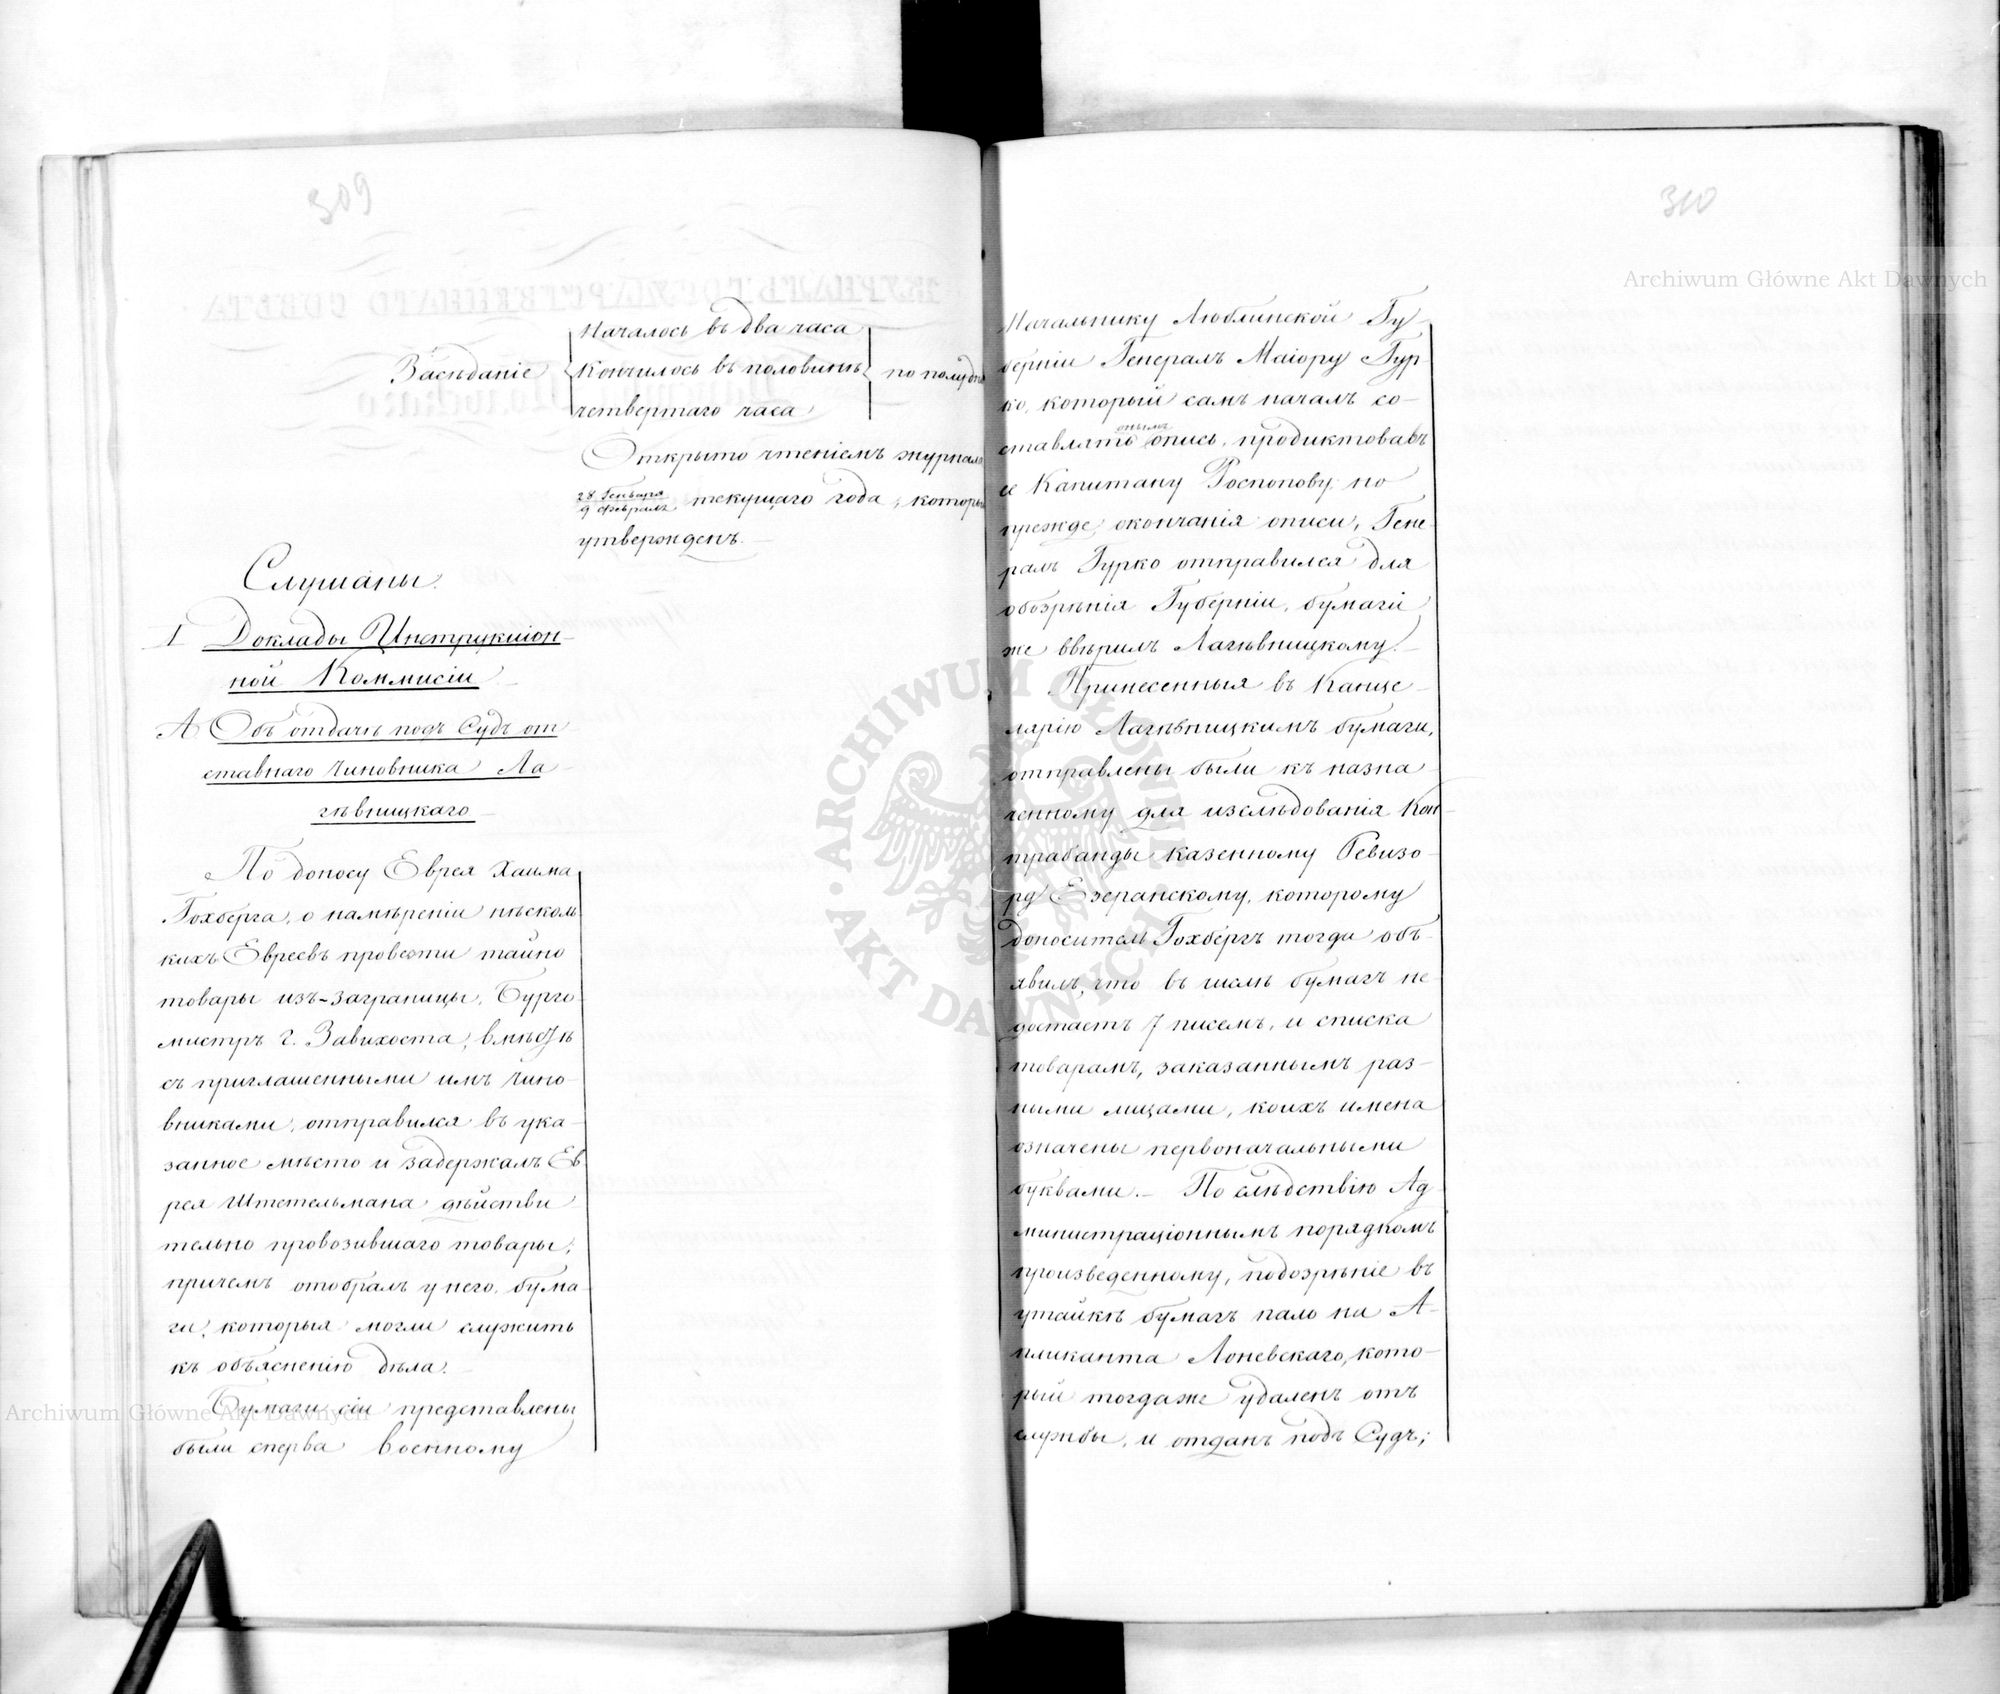 309
Засѣданіе
Началось въ два часа
Кончилось въ половинѣ
четвертаго часа
по полудн
Открыто чтеніемъ журнала
28 Генваря
9 Февраля
текущаго года, которы
утвержденъ.
Слушаны.
I Доклады Инструкціон-
ной Коммисіи
А Объ отдачѣ подъ Судъ от-
ставнаго чиновника Ла-
гѣвницкаго
По доносу Еврея Хаима
Гохберга, о намѣреніи нѣсколь-
кихъ Евреевъ провезти тайно
товары изъ-заграницы, Бурго-
мистръ г. Завихоста, вмѣстѣ
съ приглашенными имъ чино-
вниками, отправился въ ука-
занное мѣсто и задержалъ Ев-
рея Штетельмана дѣйстви-
тельно провозившаго товары;
причемъ отобралъ у него бума-
ги, которыя могли служить
къ объясненію дѣла.
Бумаги сіи представлены
были сперва Военному
310
Начальнику Люблинской Гу-
берніи Генералъ Маіору Гур-
ко, который самъ началъ со-
ставлять онымъ опись, продиктовавъ
ее Капитану Роспопову; но
прежде окончанія описи, Гене-
ралъ Гурко отправился для
обозрѣнія Губерніи, бумаги
же ввѣрилъ Лагѣвницкому.
Принесенныя въ Канце-
лярію Лагѣвницкимъ бумаги,
отправлены были къ назна-
ченному для изслѣдованія Кон-
трабанды казенному Ревизо-
ру Езеранскому, которому
доноситель Гохбергъ тогда объ-
явилъ, что въ числѣ бумагъ не
достаетъ 7 писемъ, и списка
товарамъ, заказаннымъ раз-
ными лицами, коихъ имена
означены первоначальными
буквами. — По слѣдствію Ад-
министраціоннымъ порядкомъ
произведенному, подозрѣніе въ
утайкѣ бумагъ пало на А-
пликанта Лоневскаго, кото-
рый тогдаже удаленъ отъ
службы, и отданъ подъ Судъ;
Archiwum Główne Akt Dawnych
Archiwum Główne Akt Dawnych
ARCHIWUM GŁÓWNE AKT DAWNYCH